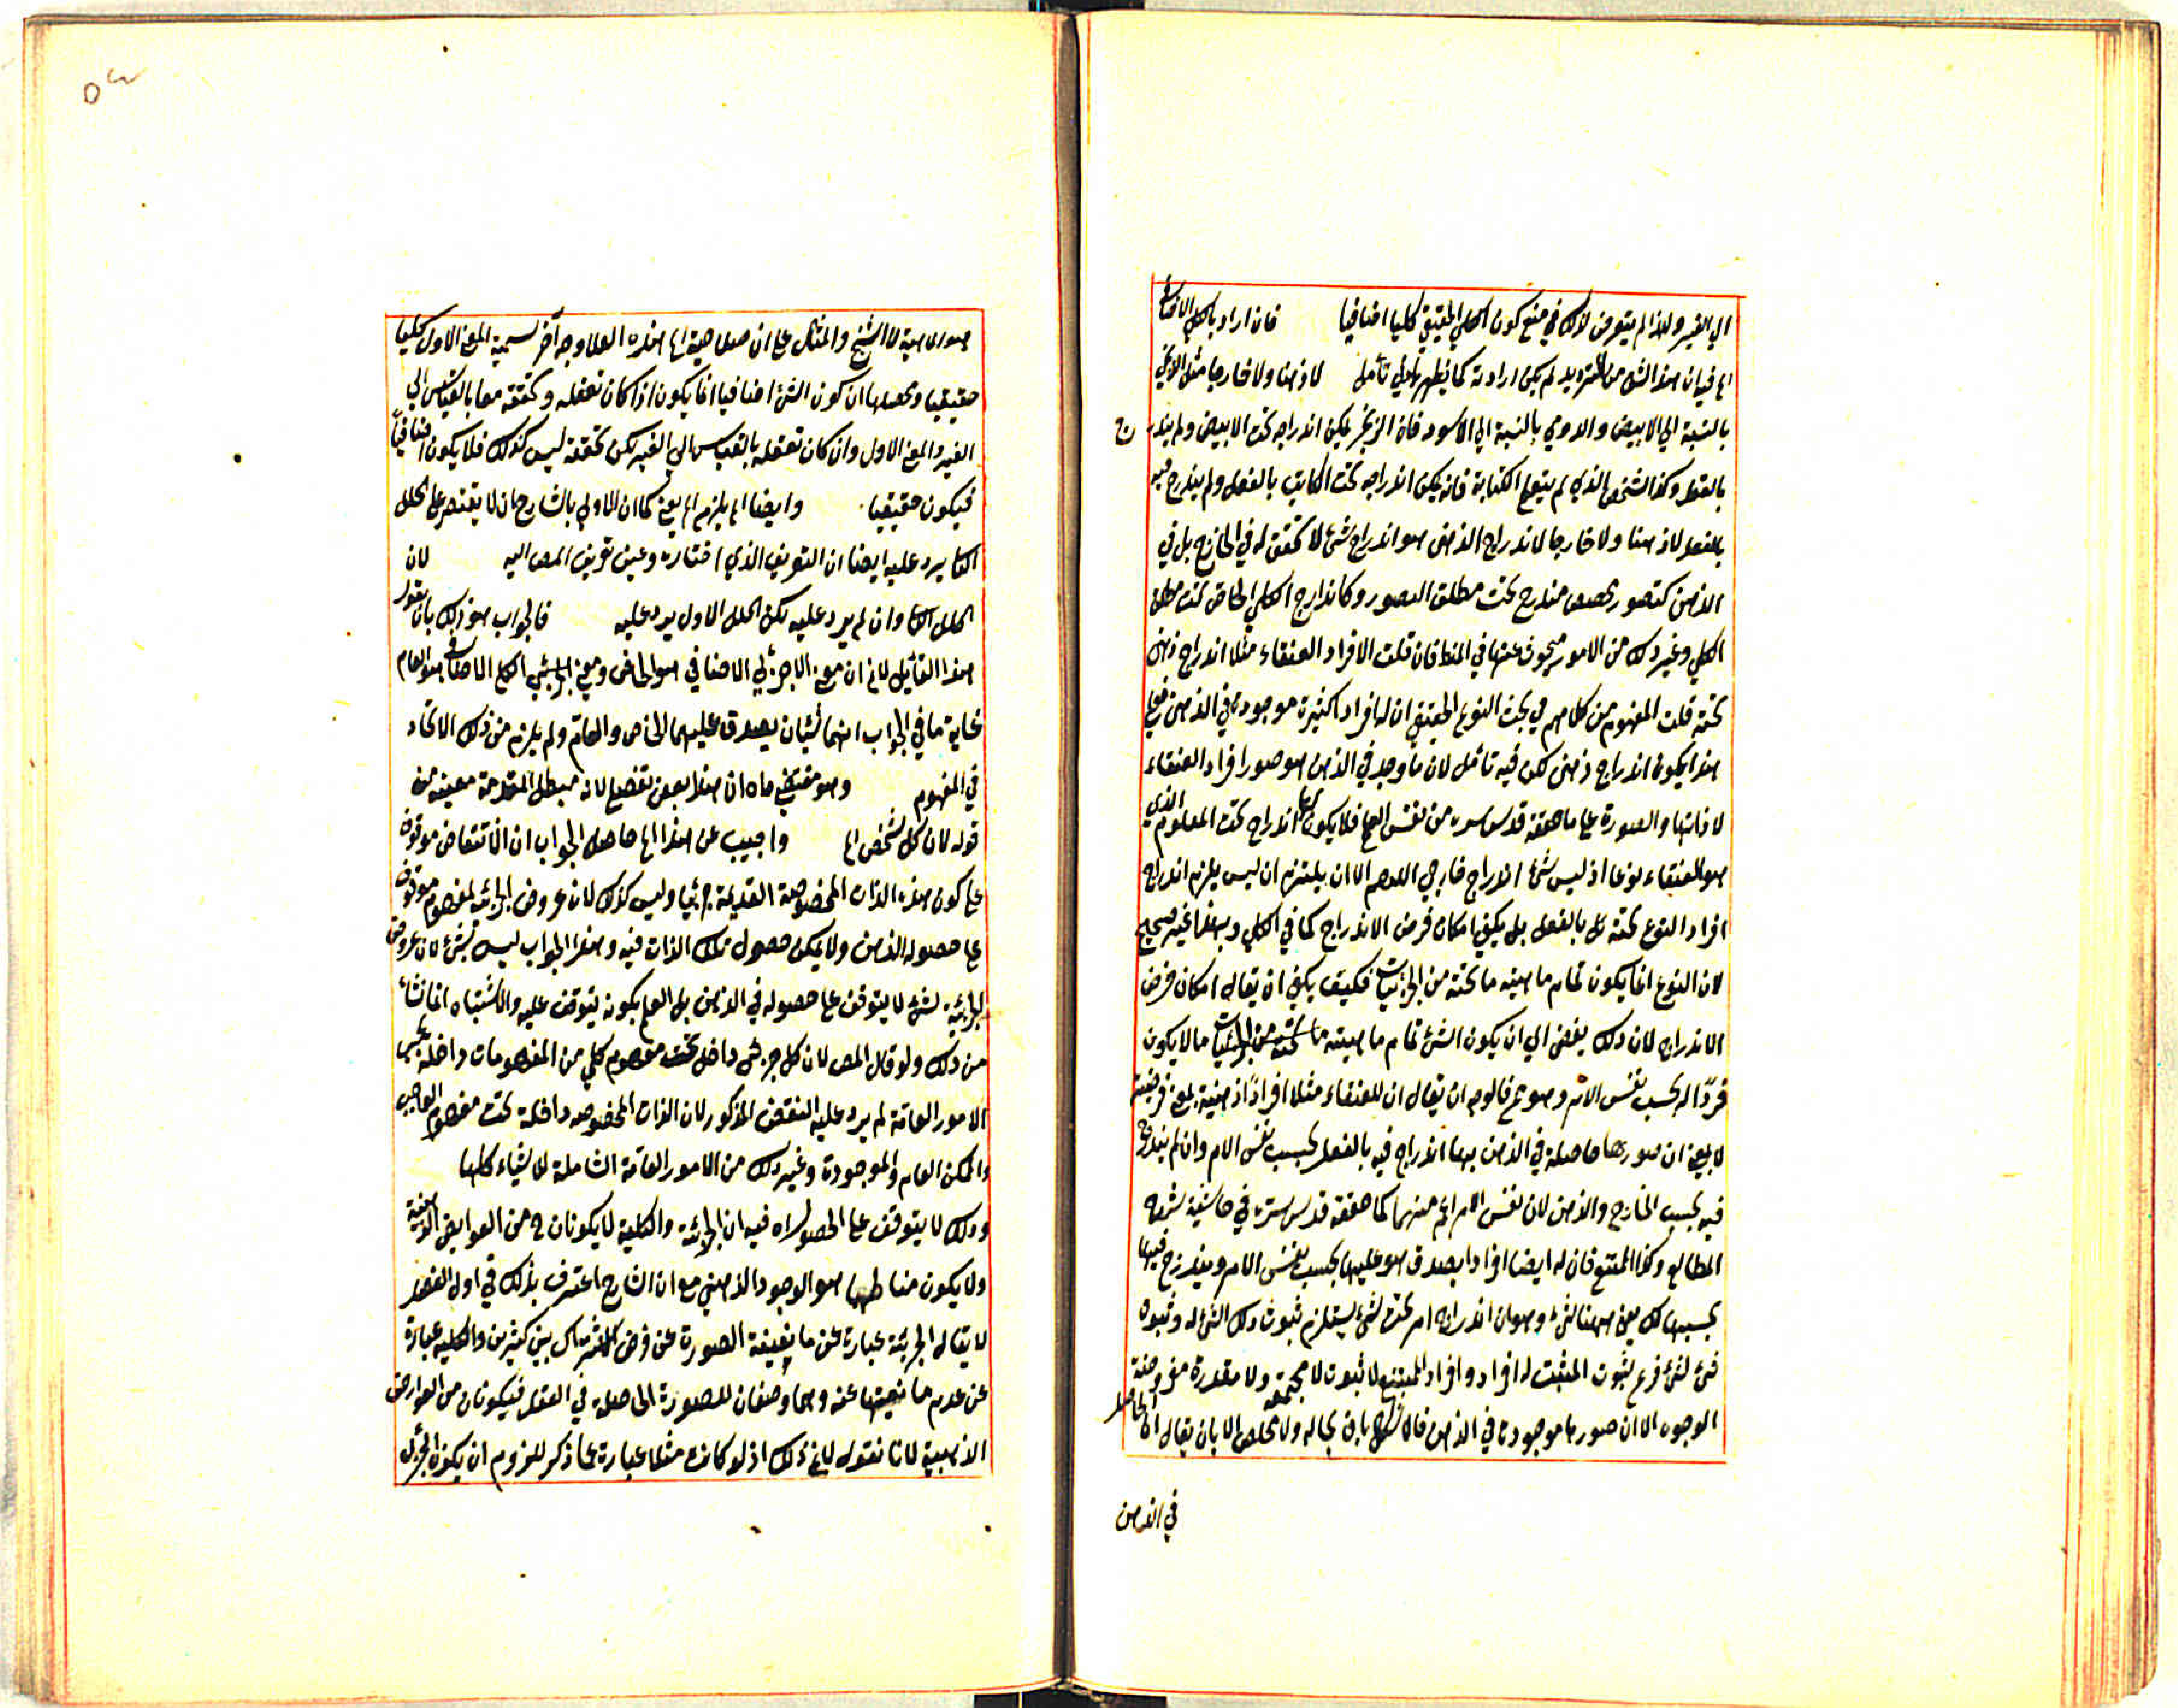 الي الغير ولهذا لم يتعرض لذلك في منع كون الكلي الحقيقي كليا اضافيا فان اراد بالكلي الاضافي
الخ فيه ان هذا الشق من الترديد لم يكن ارادته كما يظهر بادني تأمل لا ذهنا ولا خارجا مثل الزنجي
بالنسبة الي الابيض والرومي بالنسبة الي الاسود فان الزنجي يمكن اندراجه تحت الابيض ولم يندرج
بالفعل وكذا الشخص الذي لم يتعلم الكتابة فانه يمكن اندراجه تحت الكاتب بالفعل ولم يندرج فيه
بالفعل لا ذهنا ولا خارجا لاندراج الذهني هو اندراج شئ لا تحقق له في الخارج بل في
الذهن كتصور مخصص مندرج تحت مطلق التصور وكاندراج الكلي الخاص تحت مطلق
الكلي وغير ذلك من الامور مبحوث عنها في المنطق فان قلت الافراد العنقاء مثلا اندراج ذهني
تحته قلت المفهوم من كلامهم في بحث النوع الحقيقي ان له افراد كثيرة موجودة في الذهن فعلي
هذا يكون اندراج ذهني لكن فيه تأمل لان ما وجد في الذهن هو صور افراد العنقاء
لا ذاتها والصورة علي ما حققه قدس سره من نفس العلم فلا يكون لها اندراج تحت المعلوم الذي
هو العنقاء نوعا اذ ليس شئ اندراج خارجي اللهم الا ان يلتزم ان ليس يلزم اندراج
افراد النوع تحته بل بالفعل بل يكفي امكان فرض الاندراج كما في الكلي وهذا غير صحيح
لان النوع انما يكون تمام ماهية ما تحته من الجزئيات فكيف يكفي ان يقال امكان فرض
الاندراج لان ذلك يفضي الي ان يكون الشئ تمام ماهية ما تحته من الجزئيات ما لا يكون
فردًا له بحسب نفس الامر وهو مح فالوجه ان يقال ان للعنقاء مثلا افرادًا ذهنية بمعني فرضية
لا بمعني ان صورها حاصلة في الذهن بها اندراج فيه بالفعل بحسب نفس الامر وان لم يندرج
فيه بحسب الخارج والذهن لان نفس الامر اعم منهما كما حققه قدس سره في حاشية شرح
المطالع وكذا الممتنع فان له ايضا افرادا يصدق هو عليها بحسب نفس الامر ويندرج فيها
بحسبها لكن بقي ههنا شئ وهو ان اندراج امر تحت شئ يستلزم ثبوت ذلك الشئ له وثبوت
شئ لشئ فرع ثبوت المثبت له افراد وافراد الممتنع لا ثبوت لا محققة ولا مقدرة مفروضة
الوجود الا ان صورها موجودة في الذهن فالاشكال باق بحاله ولا مخلص الا بان يقال ان الحاصل
في الذهن
والمثال علي ان صلاحية الخ هذه العلاوجه آخر تسمية المعني الاول كليا
حقيقيا ومحصلها ان كون الشئ اضافيا انما يكون اذا كان تعقله وتحققه معا بالقياس الي
الغير والمعني الاول وان كان تعقله بالقياس الي الغير لكن تحققه ليس كذلك فلا يكون اضافيًا
فيكون حقيقيا وايضا الخ يلزم الخ يعني كما ان الاولي بالشارح ان لا يقتصر علي الخلل
يرد عليه ايضا ان التعريف الذي اختاره وعين تعريف المص اليه لان
الخلل وان لم يرد عليه لكن الخلل الاول يرد عليه فالجواب هو ذلك بان يقول
هذا القائل لانم ان معني الجزئي الاضافي هو الخاص ومعني الكلي الاضافي هو العام
غاية ما في الجواب انهما شيئان يصدق عليهما الخاص والعام ولم يلزم من ذلك الاتحاد
في المفهوم
قوله لان كل شخص الخ واجيب عن هذا الخ حاصل الجواب ان الانتقاض موقوف
علي كون هذه الذات المخصوصة القديمة جزئيا وليس كذلك لان عروض الجزئية لمفهوم موقوف
علي حصوله الذهن ولا يمكن حصول تلك الذات فيه وهذا الجواب ليس بشئ لان عروض
الجزئية لشئ لا يتوقف علي حصوله في الذهن بل العلم بكونه يتوقف عليه والاشتباه انما نشأ
من ذلك ولو قال المص لان كل جزئي داخل تحت مفهوم كلي من المفهومات داخلة تحت
الامور العامة لم يرد عليه النقض المذكور لان الذات المخصوصه داخلة تحت مفهوم الواجب
والممكن العام والموجودة وغير ذلك من الامور العامة الشاملة للاشياء كلها
وذلك لا يتوقف علي الحصول فيه ان الجزئية والكلية لا يكونان ح من العوارض الذهنية
ولا يكون مناطها هو الوجود الذهني مع ان الشارح اعترف بذلك في اول الفصل
لا يقال الجزئية عبارة عن ما نعية الصورة عن فرض الاشتراك بين كثيرين والكلية عبارة
عن عدم ما نعيتها عنه وهما وصفان للصورة الحاصلة في العقل فيكونان من العوارض
الذهنية لانا نقول لانم ذلك اذ لو كانت مثلا عبارة عما ذكر للزوم ان يكون الجزئي